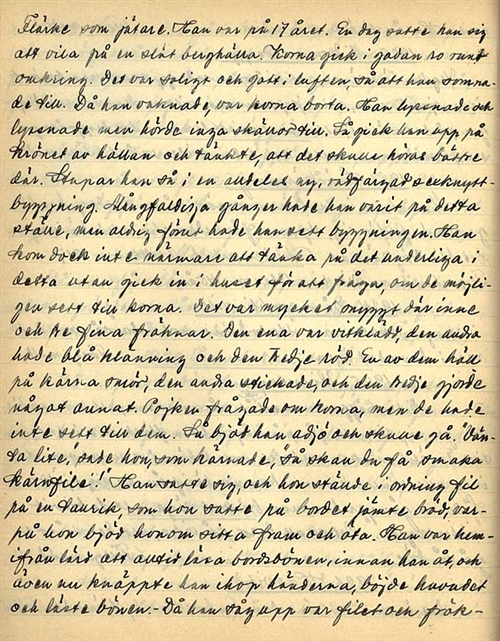 Flärke som jätare. Han var på 17 året. En dag satte han sig
att vila på en slät berghälla. Korna gick i godan ro runt
omkring. Det var soligt och gott i luften, så att han somna-
de till. Då han vaknade, var korna borta. Han lyssnade och
lyssnade men hörde inga skällor till. Så gick han upp på
krönet av hällan och tänkte, att det skulle höras bättre
där. Stupar han så i en alldeles ny, rödfärgad sexknuts-
byggning. Mångfaldiga gånger hade han varit på detta
ställe, men aldrig förut hade han sett byggningen. Han
kom dock inte närmare att tänka på det underliga i
detta utan gick in i huset för att fråga, om de möjli-
gen sett till korna. Det var mycket snyggt där inne
och tre fina fröknar. Den ena var vitklädd, den andra
hade blå klänning och den tredje röd. En av dem höll
på kärna smör, den andra stickade, och den tredje gjorde
något annat. Pojken frågade om korna, men de hade
inte sett till dem. Så bjöt han adjö och skulle gå. "Vän-
ta lite, sade hon, som kärnade, så skall du få smaka
kärnfil!" Han satte sig, och hon ställde i ordning fil
på en taurik, som hon satte på bordet jämte bröd, var-
på hon bjöd honom sitta fram och äta. Han var hem-
ifrån lärd att alltid läsa bordsbönen, innan han åt, och
även nu knäppte han ihop händerna, böjde huvudet
och läste bönen. - Då han såg upp var filet och frök-